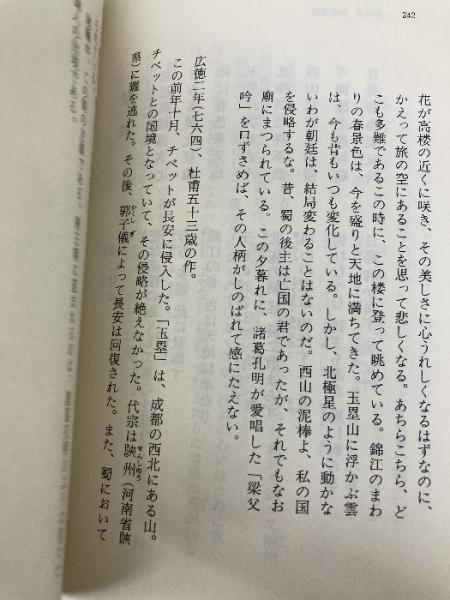 242
花が高楼の近くに咲き、その美しさに心うれしくなるはずなのに、
かえって旅の空にあることを思って悲しくなる。あちらこちら、ど
こも多難であるこの時に、この楼に登って眺めている。錦江のまわ
りの春景色は、今を盛りと天地に満ちてきた。玉塁山に浮かぶ雲
は、今も昔もいつも変化している。しかし、北極星のように動かな
いわが朝廷は、結局変わることはないのだ。西山の泥棒よ、私の国
を侵略するな。昔、蜀の後主は亡国の君であったが、それでもなお
廟にまつられている。この夕暮れに、諸葛孔明が愛唱した「梁父
吟」を口ずさめば、その人柄がしのばれて感にたえない。
広徳二年(七六四)、杜甫五十三歳の作。
この前年十月、チベットが長安に侵入した。「玉塁」は、成都の西北にある山。
チベットとの国境となっていて、その侵略が絶えなかった。代宗は陝州(河南省陝
県)に難を逃れた。その後、郭子儀によって長安は回復された。また、蜀において